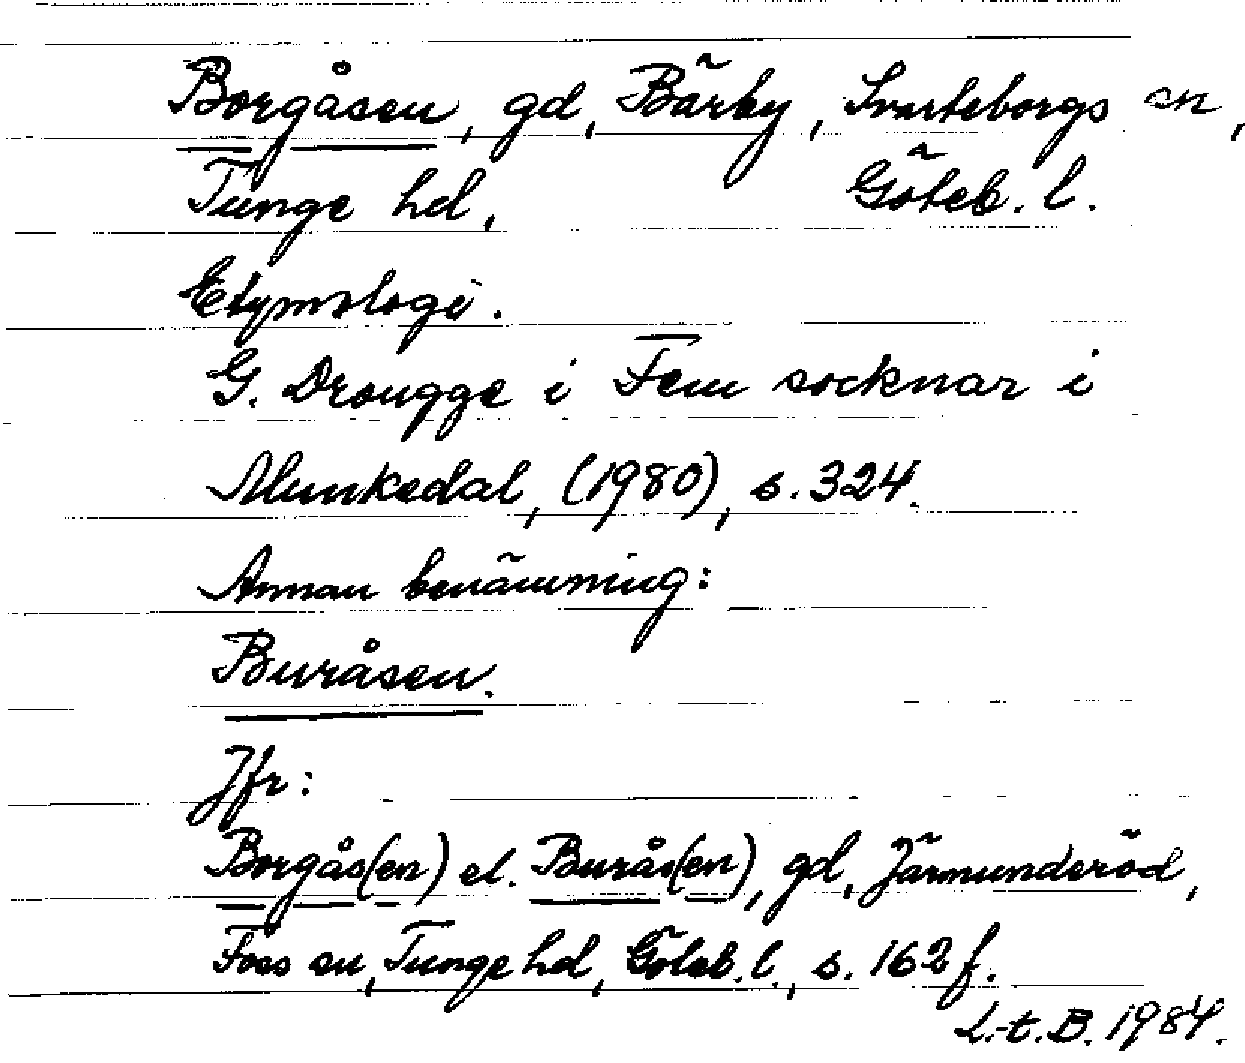 Borgåsen, gd, Bärby, Svarteborgs sn,
Tunge hd, Göteb. l.
Etymologi.
G. Drougge i Fem socknar i
Munkedal, (1980), s. 324.
Annan benämning:
Buråsen.
Jfr:
Borgås(en) el. Burås(en), gd, Järmunderöd,
Foss sn, Tunge hd, Göteb. l., s. 162 f.
L.-t. B. 1984.